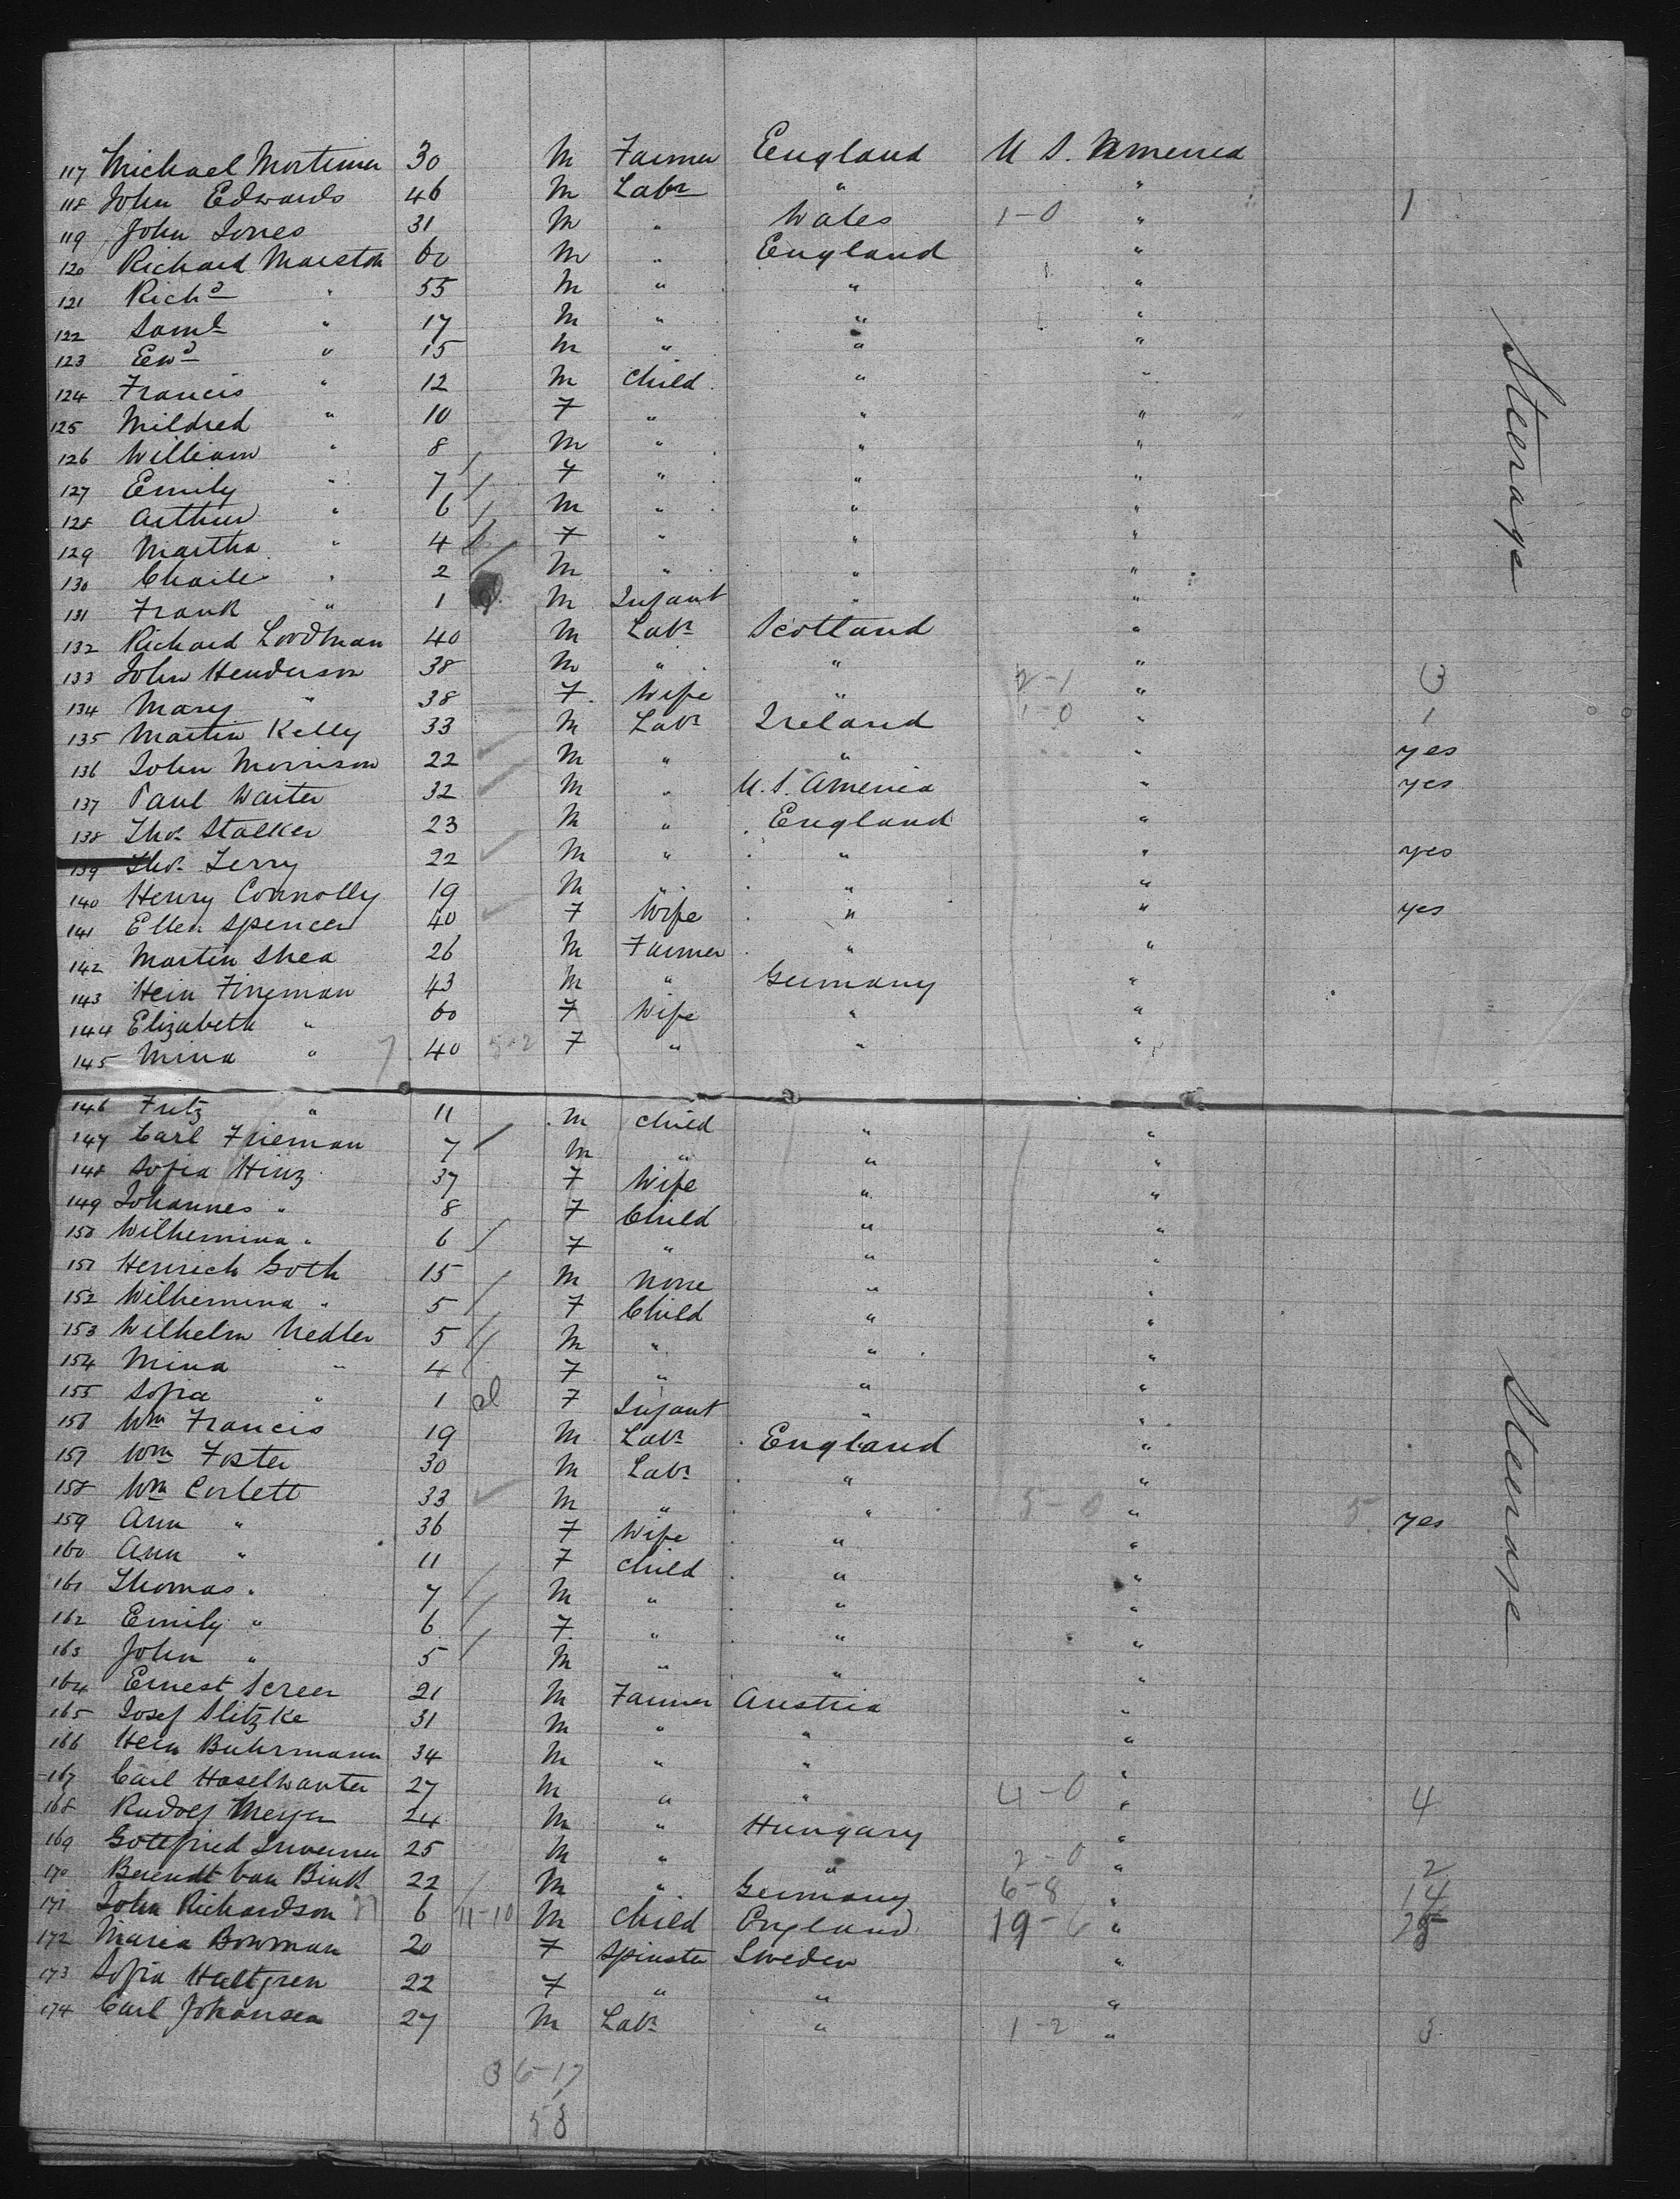 117 Michael Mortimer 30 M Farmer England U S. America
118 John Edwards 46 M Labr " " 1
119 John Jones 31 M " Wales 1-0 "
120 Richard Marston 60 M " England "
121 Richd " 55 M " " "
122 Saml " 17 M " " "
123 Ewd " 15 M " " "
124 Francis " 12 M Child " "
125 Mildred " 10 F " " "
126 William " 8 M " " "
127 Emily " 7 F " " "
128 Arthur " 6 M " " "
129 Martha " 4 F " " "
130 Charles " 2 M " " "
131 Frank " 1 M Infant " "
132 Richard Loodman 40 M Labr Scotland "
133 John Henderson 38 M " " "
134 Mary " 38 F Wife " 2-1 " 3
135 Martin Kelly 33 M Labr Ireland 1-0 " 1
136 John Morrison 22 M " " " yes
137 Paul Waiter 32 M " U.S. America " yes
138 Thos Stalker 23 M " England "
139 Thos Terry 22 M " " " yes
140 Henry Connolly 19 M " " "
141 Ellen Spencer 40 F Wife " " yes
142 Martin Shea 26 M Farmer " "
143 Hein Fineman 43 M " Germany "
144 Elizabeth " 60 F Wife " "
145 Mina " 7 40 5-2 F " " "
Steerage
146 Fritz " 11 M Child " "
147 Carl Frieman 7 M " " "
148 Sofia Hinz 37 F Wife " "
149 Johannes " 8 F Child " "
150 Wilhemina " 6 F " " "
151 Henrich Goth 15 M None " "
152 Wilhemina " 5 F Child " "
153 Wilhelm Nedler 5 M " " "
154 Mina " 4 F " " "
155 Sofia " 1 F Infant " "
156 Wm Francis 19 M Labr England "
157 Wm Foster 30 M Labr " "
158 Wm Corlett 33 M " " 5-0 " 5 yes
159 Ann " 36 F Wife " "
160 Ann " 11 F Child " "
161 Thomas " 7 M " " "
162 Emily " 6 F " " "
163 John " 5 M " " "
164 Ernest Screer 21 M Farmer Austria "
165 Josef Slitzke 31 M " " "
166 Hein Buhrmann 34 M " " "
167 Carl Haselwanter 27 M " " 4-0 " 4
168 Rudolf Meyer 24 M " Hungary "
169 Gottfried 25 M " " 2-0 " 2
170 Berendt van Bink 22 M " Germany 6-8 " 14
171 John Richardson 6 11-10 M Child England 19-6 " 25
172 Maria Bowman 20 F Spinster Sweden "
173 Sofia Hultgren 22 F " " "
174 Carl Johansen 27 M Labr " 1-2 " 3
Steerage
36-17
53